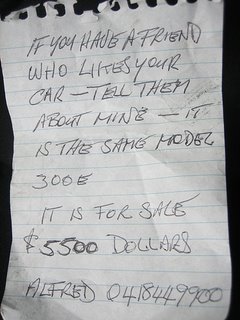 IF YOU HAVE A FRIEND
WHO LIKES YOUR
CAR — TELL THEM
ABOUT MINE — IT
IS THE SAME MODEL
300E
IT IS FOR SALE
$5500 DOLLARS
ALFRED 0418449900